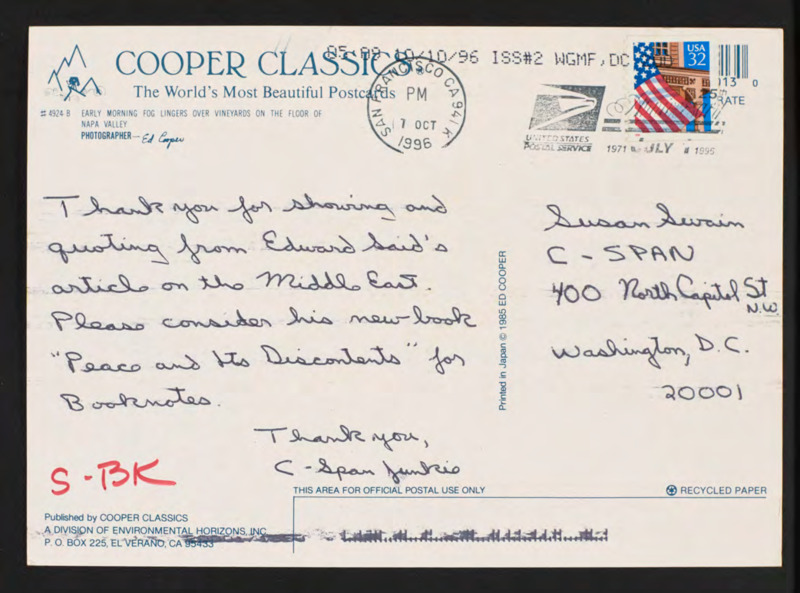 COOPER CLASSICS
The World's Most Beautiful Postcards
# 4924 B EARLY MORNING FOG LINGERS OVER VINEYARDS ON THE FLOOR OF
NAPA VALLEY
PHOTOGRAPHER— Ed Cooper
10/10/96 ISS#2 WGMF, DC
SAN FRANCISCO CA 941
PM
7 OCT
1996
UNITED STATES
POSTAL SERVICE
1971
JULY
1996
USA
32
RATE
Thank you for showing and
quoting from Edward Said's
article on the Middle East.
Please consider his new book
"Peace and Its Discontents" for
Booknotes.
Thank you,
C-Span Junkie
S-BK
Printed in Japan © 1985 ED COOPER
Susan Swain
C-SPAN
400 North Capitol St
N.W.
Washington, D.C.
20001
THIS AREA FOR OFFICIAL POSTAL USE ONLY
RECYCLED PAPER
Published by COOPER CLASSICS
A DIVISION OF ENVIRONMENTAL HORIZONS, INC.
P. O. BOX 225, EL VERANO, CA 95433